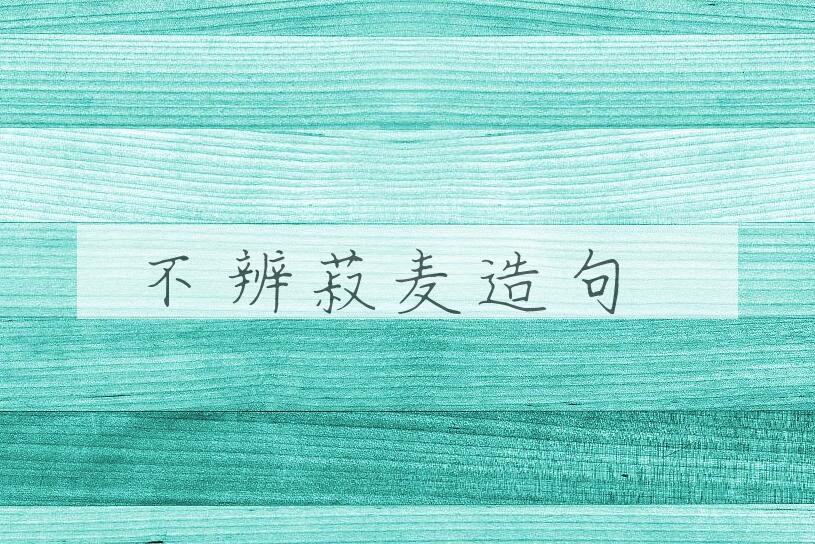 不辨菽麦造句